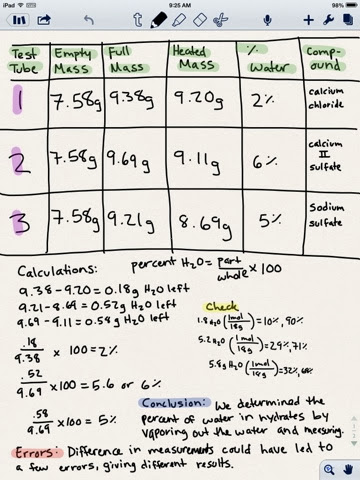 iPad
9:25 AM
98%
Test Tube Empty Mass Full Mass Heated Mass % Water Comp-ound
1 7.58g 9.38g 9.20g 2% calcium chloride
2 7.58g 9.69g 9.11g 6% calcium II sulfate
3 7.58g 9.21g 8.69g 5% Sodium sulfate
Calculations: percent H2O = part/whole × 100
9.38 - 9.20 = 0.18g H2O left
9.21 - 8.69 = 0.52g H2O left
9.69 - 9.11 = 0.58g H2O left
.18/9.38 × 100 = 2%
.52/9.69 × 100 = 5.6 or 6%
.58/9.69 × 100 = 5%
Check
1.8 H2O (1mol/18g) = 10%, 90%
5.2 H2O (1mol/18g) = 29%, 71%
5.8g H2O (1mol/18g) = 32%, 68%
Conclusion: We determined the
percent of water in hydrates by
vaporing out the water and measuring.
Errors: Difference in measurements could have led to
a few errors, giving different results.